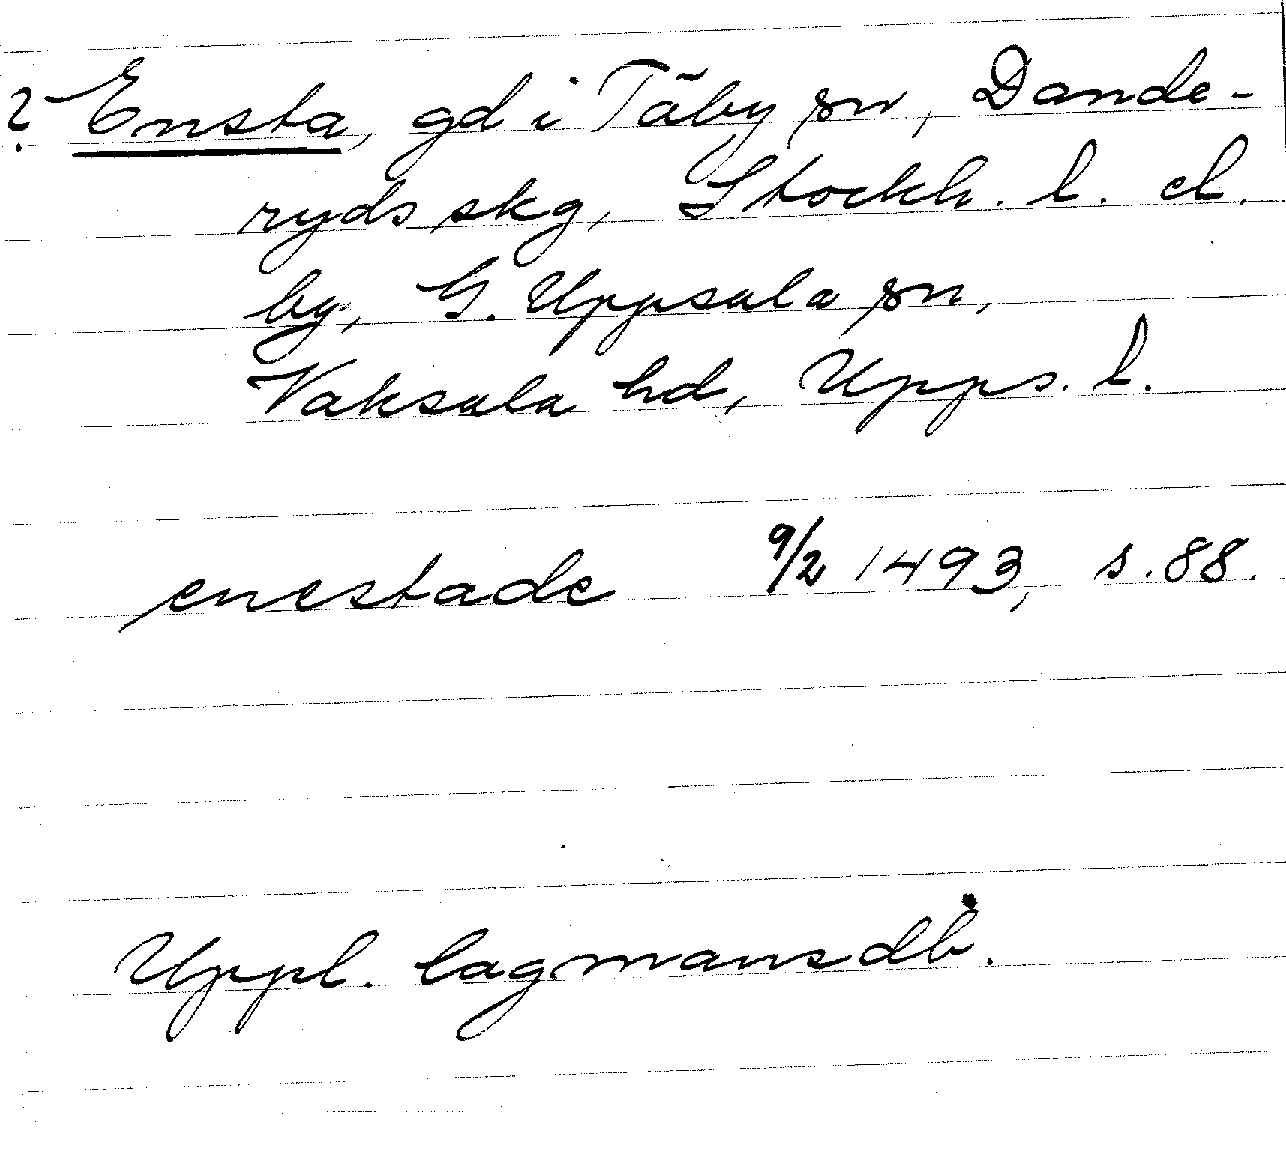 ? Ensta, gd i Täby sn, Dande-
ryds skg, Stockh. l. el.
by, G. Uppsala sn,
Vaksala hd, Upps. l.
enestade 9/2 1493, s. 88.
Uppl. lagmansdb.